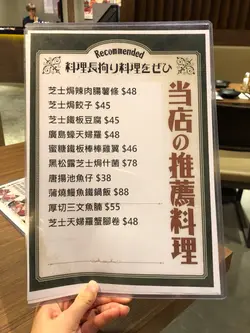 Recommended
料理長拘り料理をぜひ
芝士焗辣肉腸薯條 $48
芝士焗餃子 $45
芝士鐵板豆腐 $45
廣島蠔天婦羅 $48
蜜糖鐵板棒棒雞翼 $46
黑松露芝士焗什菌 $78
唐揚池魚仔 $38
蒲燒鰻魚鐵鍋飯 $88
厚切三文魚腩 $55
芝士天婦羅蟹腳卷 $48
当店の推薦料理